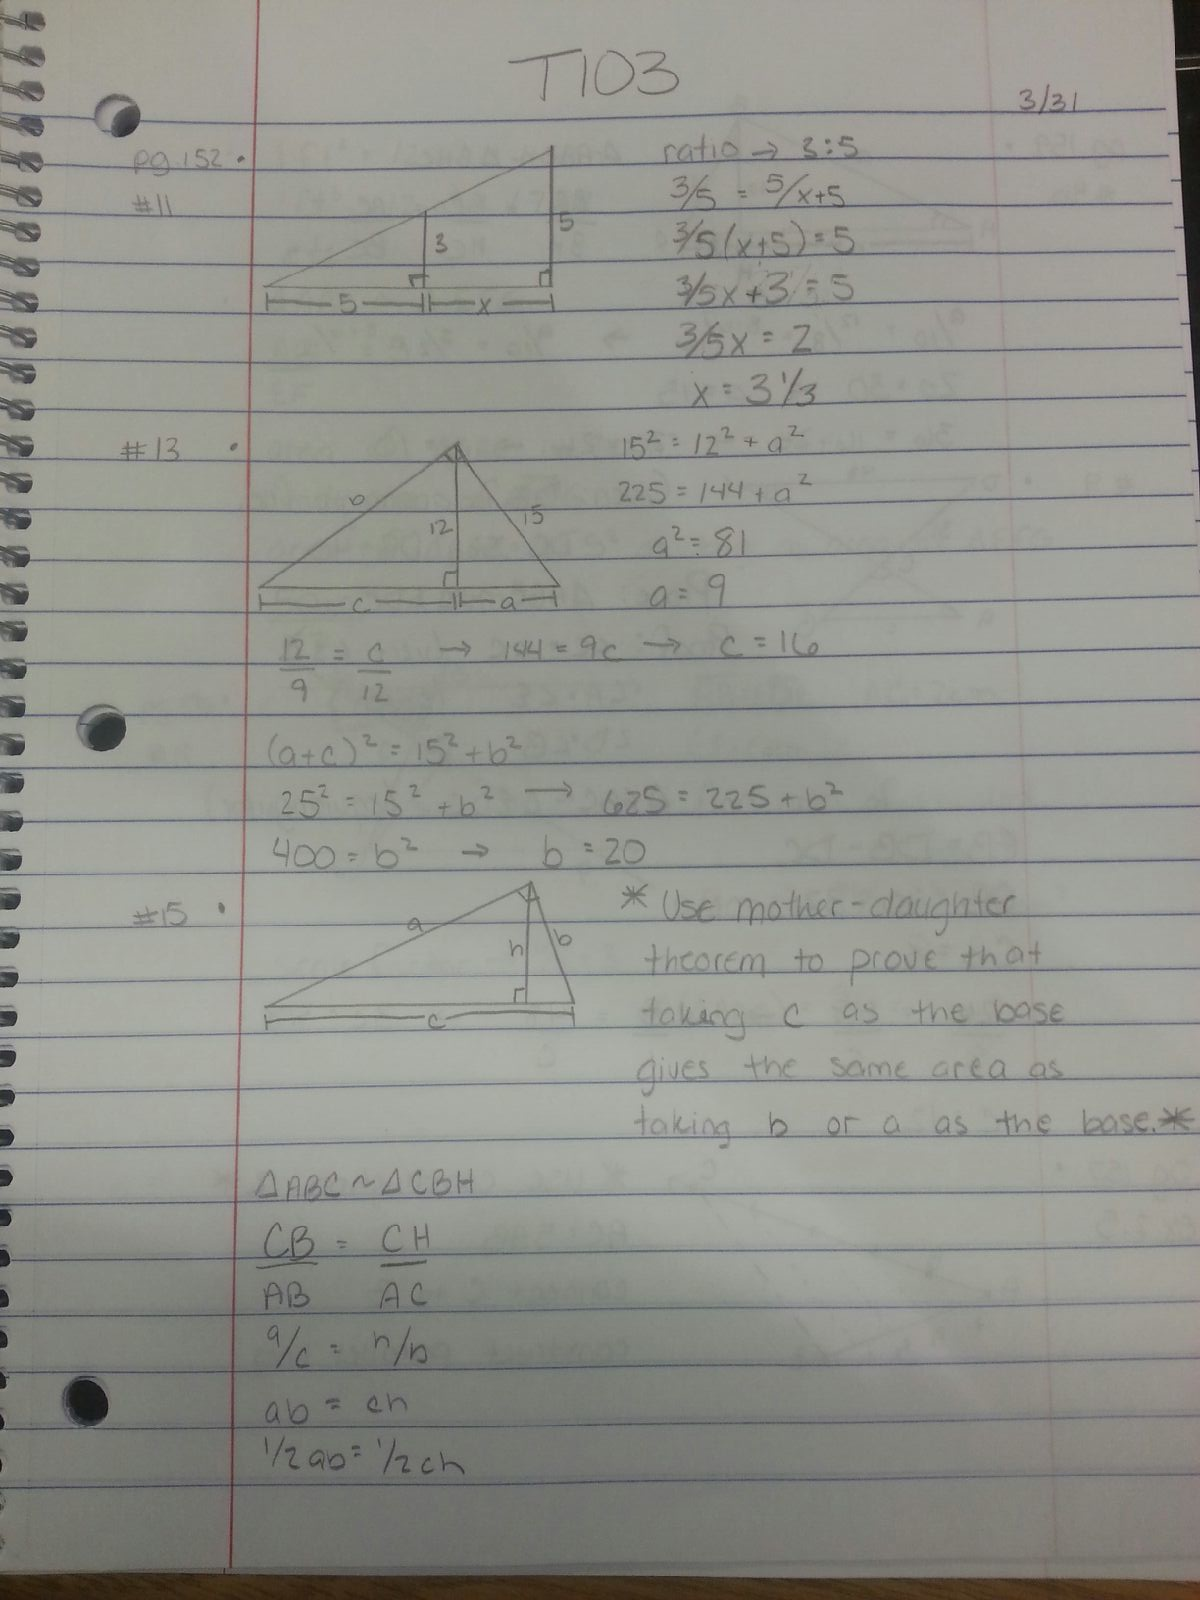 T103
3/31
pg.152 •
#11
3
5
5
x
ratio → 3:5
3/5 = 5/x+5
3/5(x+5)=5
3/5x+3=5
3/5x = 2
x = 3 1/3
#13 •
b
12
15
c
a
15² = 12² + a²
225 = 144 + a²
a² = 81
a = 9
12/9 = c/12 → 144 = 9c → c = 16
(a+c)² = 15² + b²
25² = 15² + b² → 625 = 225 + b²
400 = b² → b = 20
#15 •
a
h
b
c
* Use mother-daughter
theorem to prove that
taking c as the base
gives the same area as
taking b or a as the base.*
△ABC ~ △CBH
CB = CH
AB AC
a/c = h/b
ab = ch
1/2ab = 1/2ch